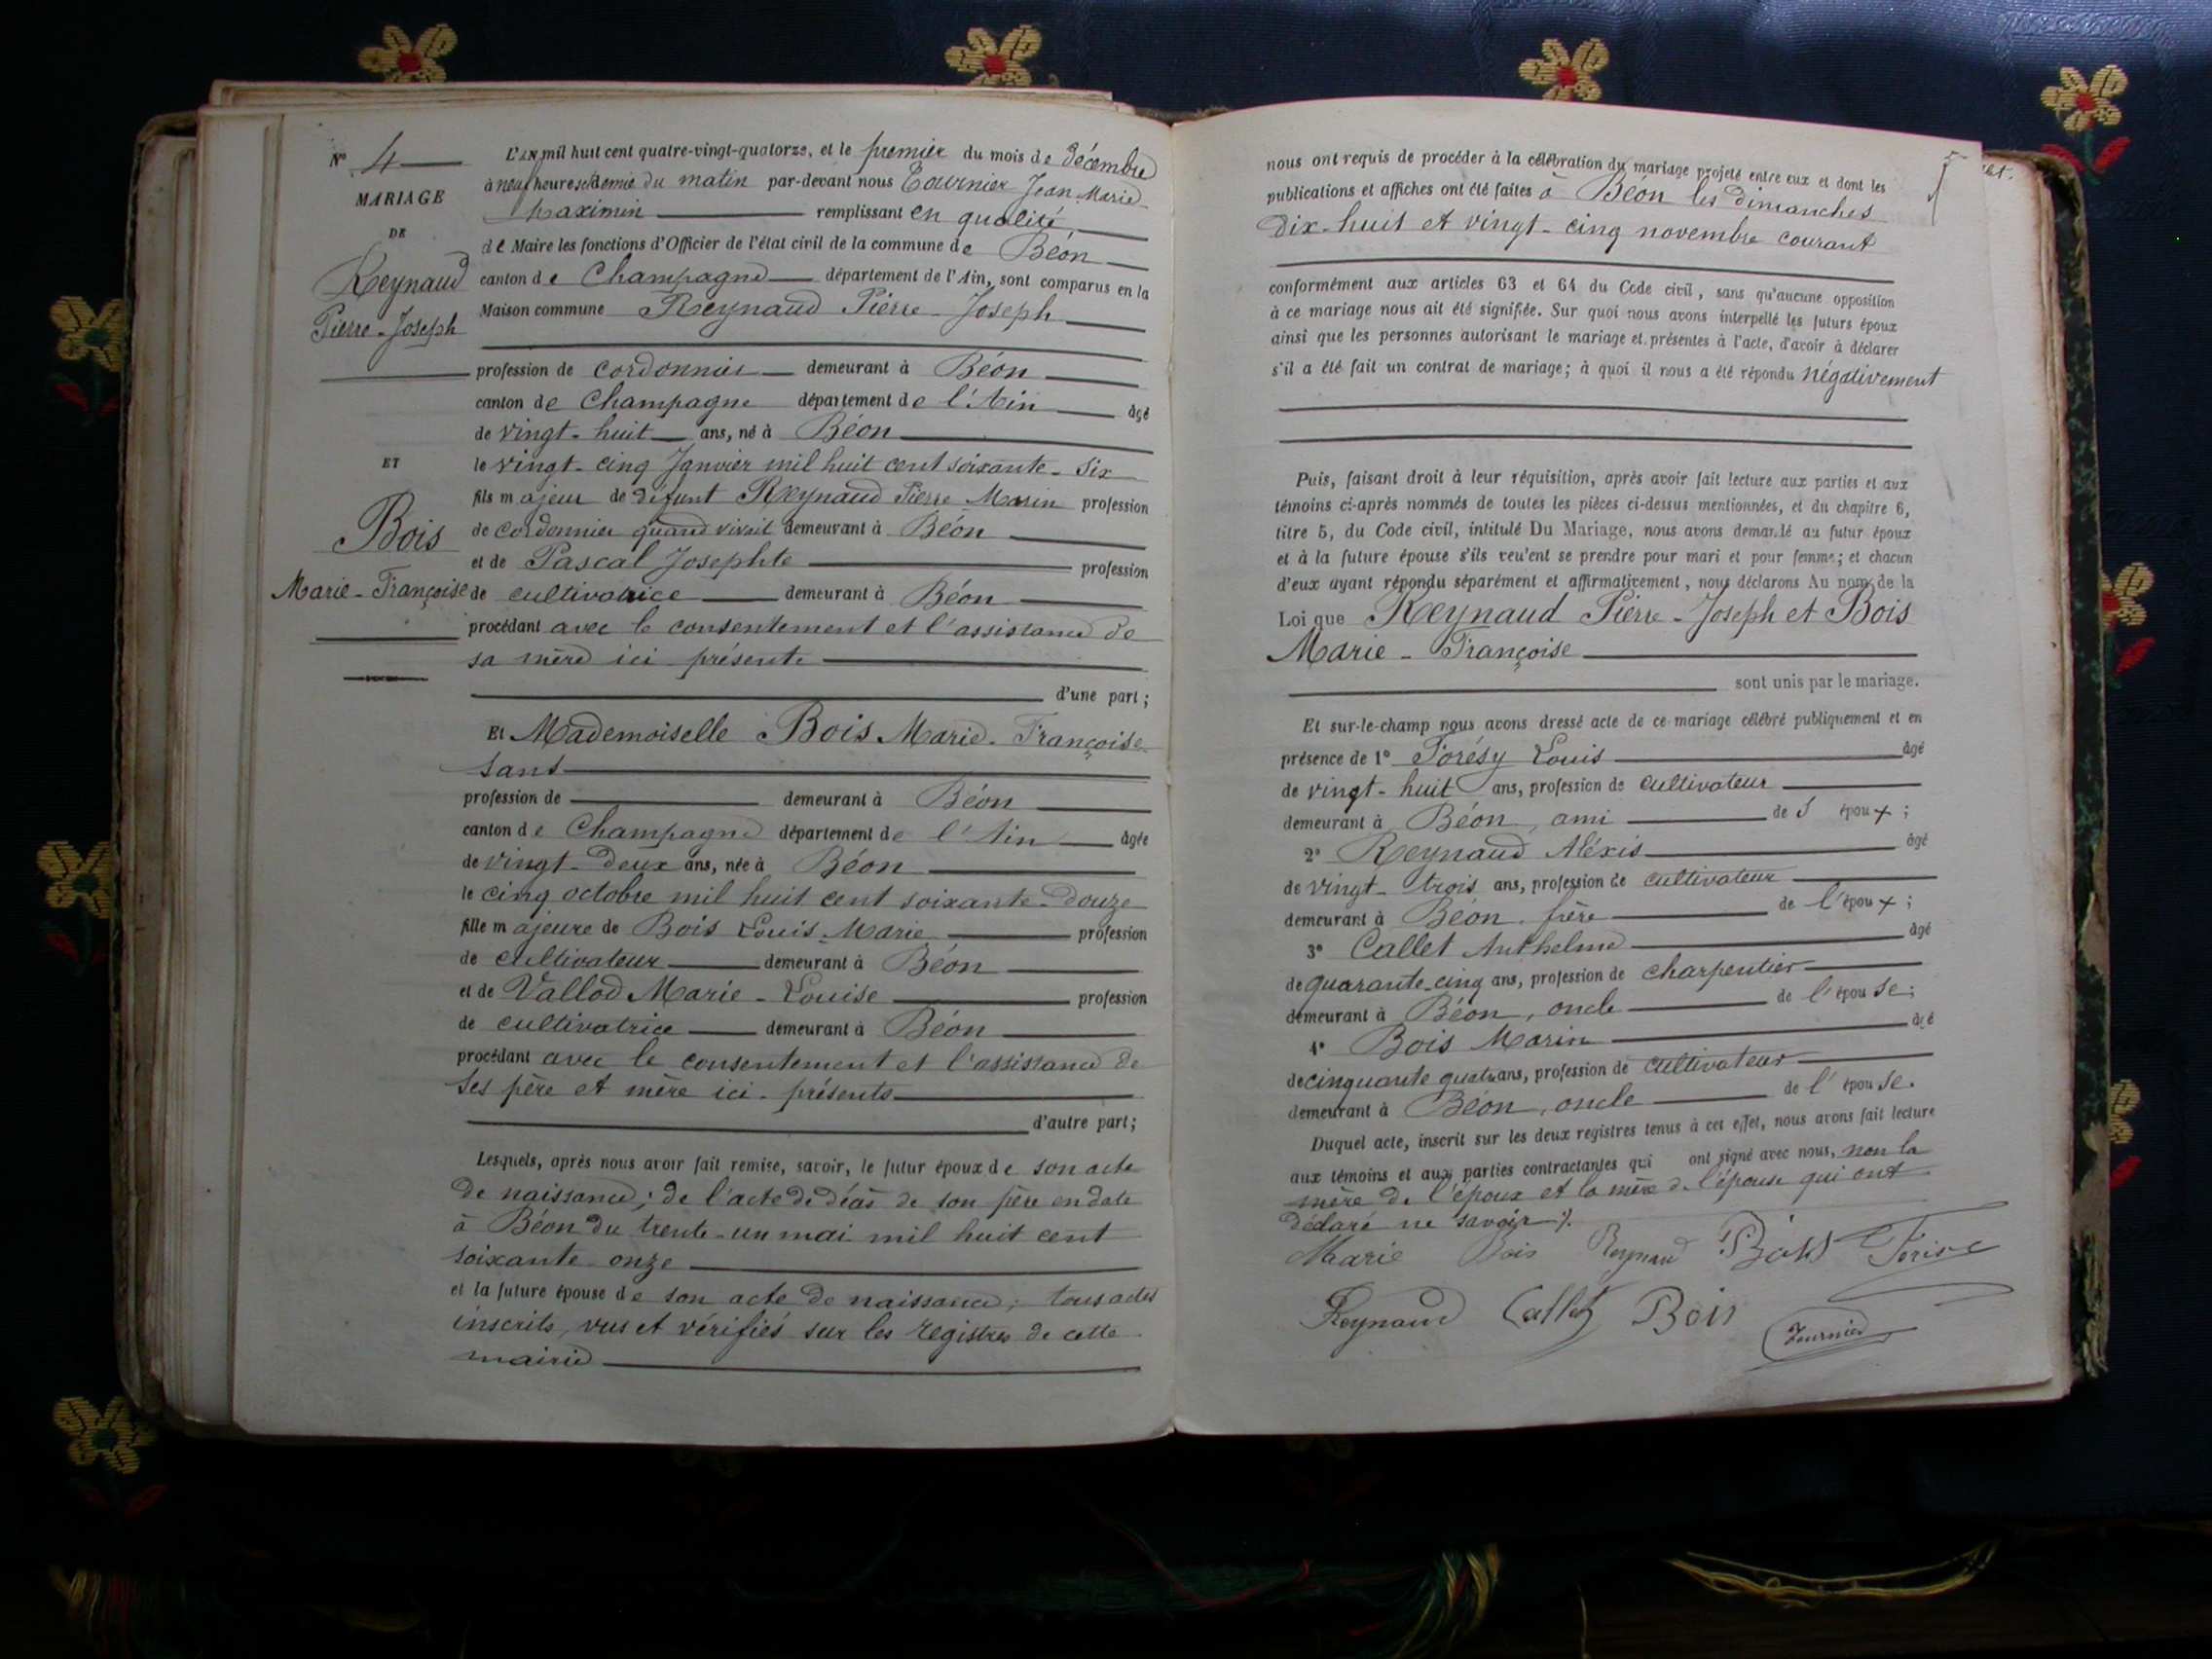 N° 4
MARIAGE
DE
Reynaud
Pierre-Joseph
ET
Bois
Marie-Françoise
L'AN mil huit cent quatre-vingt-quatorze, et le premier du mois de décembre
à neuf heures & demie du matin par-devant nous Tournier Jean-Marie-
Maximin remplissant en qualité
de Maire les fonctions d'Officier de l'état civil de la commune de Béon
canton de Champagne département de l'Ain, sont comparus en la
Maison commune Reynaud Pierre-Joseph
profession de cordonnier demeurant à Béon
canton de Champagne département de l'Ain âgé
de vingt-huit ans, né à Béon
le vingt-cinq Janvier mil huit cent soixante-six
fils majeur de défunt Reynaud Pierre Marin profession
de cordonnier quand vivait demeurant à Béon
et de Pascal Josephte profession
de cultivatrice demeurant à Béon
procédant avec le consentement et l'assistance de
sa mère ici présente
d'une part;
Et Mademoiselle Bois Marie-Françoise
sans
profession de demeurant à Béon
canton de Champagne département de l'Ain âgée
de vingt-deux ans, née à Béon
le cinq octobre mil huit cent soixante-douze
fille majeure de Bois Louis-Marie profession
de cultivateur demeurant à Béon
et de Vallod Marie-Louise profession
de cultivatrice demeurant à Béon
procédant avec le consentement et l'assistance de
ses père et mère ici présents
d'autre part;
Lesquels, après nous avoir fait remise, savoir, le futur époux de son acte
de naissance; de l'acte de décès de son père en date
à Béon du trente-un mai mil huit cent
soixante onze
et la future épouse de son acte de naissance; tous actes
inscrits, vus et vérifiés sur les registres de cette
mairie
nous ont requis de procéder à la célébration du mariage projeté entre eux et dont les
publications et affiches ont été faites à Béon les dimanches
dix-huit et vingt-cinq novembre courant
conformément aux articles 63 et 64 du Code civil, sans qu'aucune opposition
à ce mariage nous ait été signifiée. Sur quoi nous avons interpellé les futurs époux
ainsi que les personnes autorisant le mariage et présentes à l'acte, d'avoir à déclarer
s'il a été fait un contrat de mariage; à quoi il nous a été répondu négativement
Puis, faisant droit à leur réquisition, après avoir fait lecture aux parties et aux
témoins ci-après nommés de toutes les pièces ci-dessus mentionnées, et du chapitre 6,
titre 5, du Code civil, intitulé Du Mariage, nous avons demandé au futur époux
et à la future épouse s'ils veulent se prendre pour mari et pour femme; et chacun
d'eux ayant répondu séparément et affirmativement, nous déclarons Au nom de la
Loi que Reynaud Pierre-Joseph et Bois
Marie-Françoise
sont unis par le mariage.
Et sur-le-champ nous avons dressé acte de ce mariage célébré publiquement et en
présence de 1° Forésy Louis âgé
de vingt-huit ans, profession de cultivateur
demeurant à Béon, ami de l époux;
2° Reynaud Aléxis âgé
de vingt-trois ans, profession de cultivateur
demeurant à Béon, frère de l'époux;
3° Callet Anthelme âgé
de quarante-cinq ans, profession de charpentier
demeurant à Béon, oncle de l'épouse;
4° Bois Marin âgé
de cinquante quatre ans, profession de cultivateur
demeurant à Béon, oncle de l'épouse.
Duquel acte, inscrit sur les deux registres tenus à cet effet, nous avons fait lecture
aux témoins et aux parties contractantes qui ont signé avec nous, non la
mère de l'époux et la mère de l'épouse qui ont
déclaré ne savoir ./.
Marie Bois Reynaud Bois
Reynaud Callet Bois Tournier